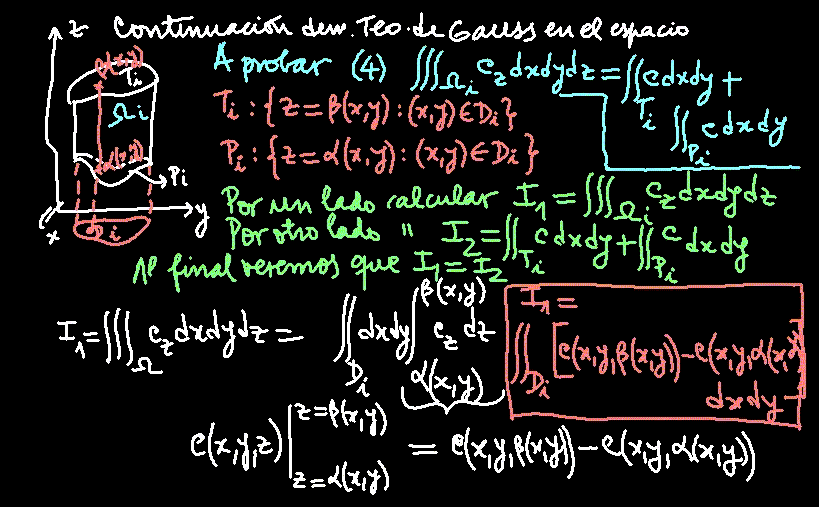 Continuación dem. Teo. de Gauss en el espacio
z
β(x,y)
T_i
Ω_i
α(x,y)
P_i
x
y
D_i
A probar (4) ∭_{Ω_i} C_z dxdydz = ∬_{T_i} C dxdy +
∬_{P_i} C dxdy
T_i : {z = β(x,y) : (x,y) ∈ D_i}
P_i : {z = α(x,y) : (x,y) ∈ D_i}
Por un lado calcular I_1 = ∭_{Ω_i} C_z dxdydz
Por otro lado " I_2 = ∬_{T_i} C dxdy + ∬_{P_i} C dxdy
Al final veremos que I_1 = I_2
I_1 = ∭_Ω C_z dxdydz = ∬_{D_i} dxdy ∫_{α(x,y)}^{β(x,y)} C_z dz
I_1 =
∬_{D_i} [C(x,y,β(x,y)) - C(x,y,α(x,y))]
dxdy
C(x,y,z) |_{z=α(x,y)}^{z=β(x,y)} = C(x,y,β(x,y)) - C(x,y,α(x,y))